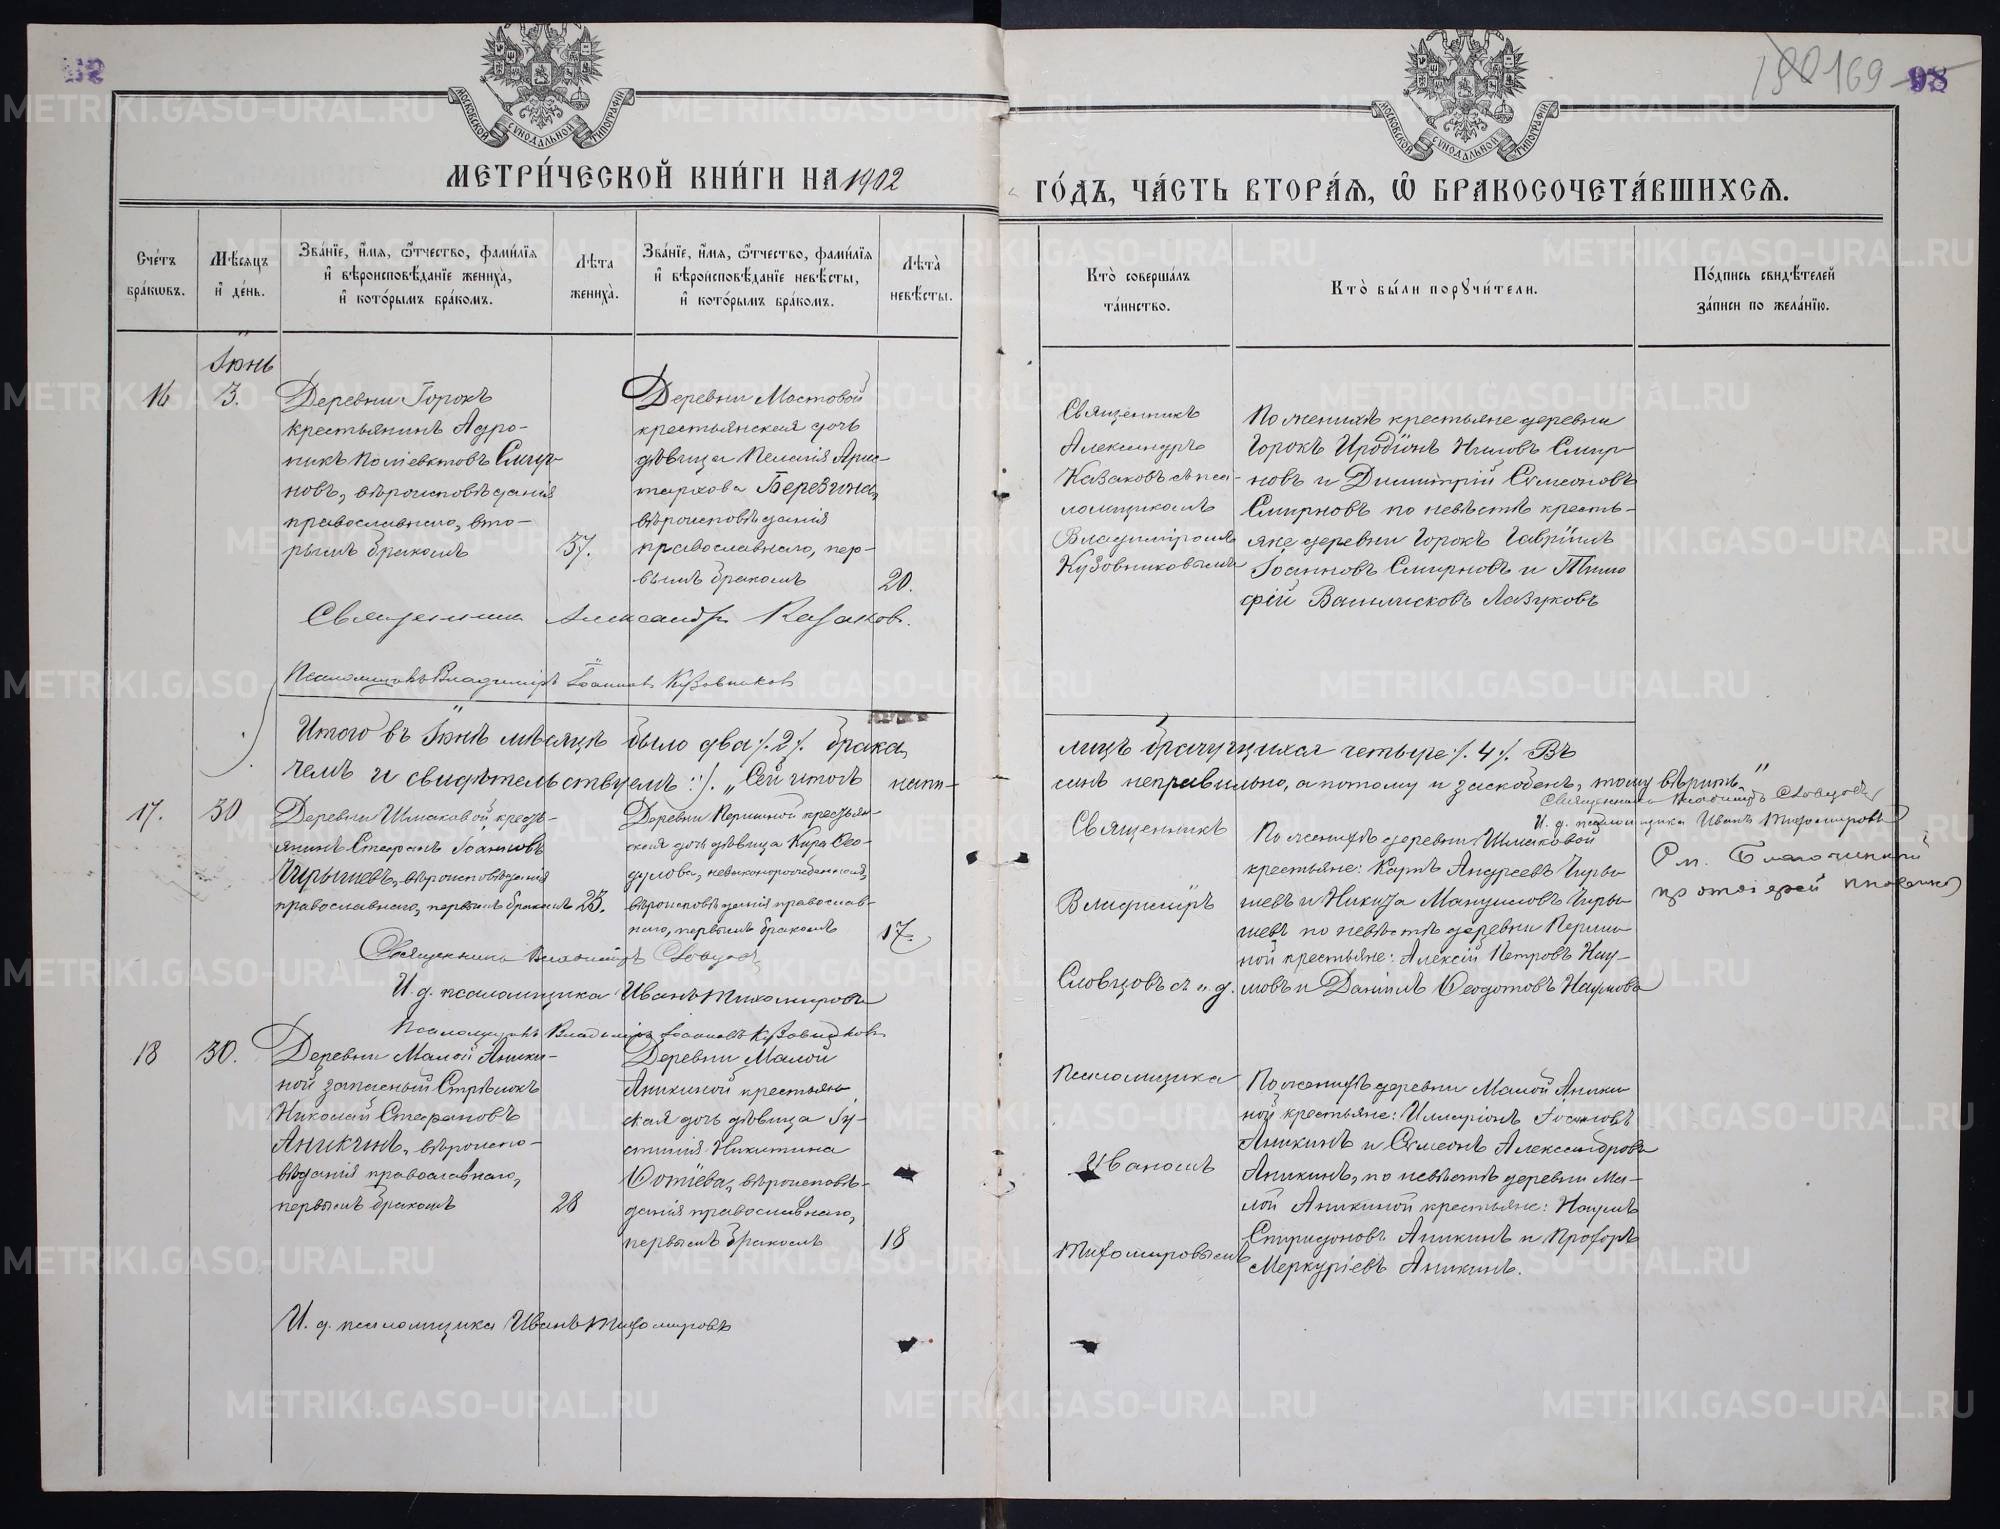 98
190 169 98
МОСКОВСКОЙ СѴНОДАЛЬНОЙ ТИПОГРАФІИ
МОСКОВСКОЙ СѴНОДАЛЬНОЙ ТИПОГРАФІИ
МЕТРИ́ЧЕСКОЙ КНИ́ГИ НА 1902
ГО́ДЪ, ЧА́СТЬ ВТОРА́Ѧ, Ѽ БРАКОСОЧЕТА́ВШИХСѦ.
Сче́тъ бра́кѡвъ.
Мѣ́сѧцъ и҆ де́нь.
Зва́нїе, и҆́мѧ, ѻ҆́тчество, фами́лїѧ
и҆ вѣроисповѣ́данїе жениха̀,
и҆ кото́рымъ бра́комъ.
Лѣ́та жениха̀.
Зва́нїе, и҆́мѧ, ѻ҆́тчество, фами́лїѧ
и҆ вѣроисповѣ́данїе невѣ́сты,
и҆ кото́рымъ бра́комъ.
Лѣ́та невѣ́сты.
Кто̀ соверша́лъ
та́инство.
Кто̀ бы́ли порꙋчи́тели.
По́дпись свидѣ́телей
за́писи по жела́нїю.
Іюнь
16
3.
Деревни Горокъ
крестьянинъ Адро-
никъ Поліевктовъ Смир-
новъ, вѣроисповѣданія
православнаго, вто-
рымъ бракомъ
37.
Деревни Мостовой
крестьянская дочь
дѣвица Пелагія Арис-
тархова Березина,
вѣроисповѣданія
православнаго, пер-
вымъ бракомъ
20.
Священникъ
Александръ
Казаковъ съ пса-
ломщикомъ
Владиміромъ
Кузовниковымъ
По женихѣ крестьяне деревни
Горокъ Иродіонъ Ниловъ Смир-
новъ и Димитрій Сѵмеоновъ
Смирновъ по невѣстѣ кресть-
яне деревни Горокъ Гавріилъ
Іоанновъ Смирновъ и Тимо
фій Василисковъ Лазуковъ
Священникъ Александръ Казаковъ.
Псаломщикъ Владиміръ Іоанновъ Кузовниковъ
Итого въ Іюнѣ мѣсяцѣ было два ٪ 2 ٪ брака,
лицъ брачущихся четыре ٪ 4 ٪ Въ
чемъ и свидѣтельствуемъ :٪. „Сей итогъ напи-
санъ неправильно, а потому и заскобленъ, тому вѣрить“
Священникъ Владиміръ Словцовъ
И. д. псаломщика Иванъ Тихомировъ
17.
30
Деревни Шмаковой кресть-
янинъ Стефанъ Іоанновъ
Чирышевъ, вѣроисповѣданія
православнаго, первымъ бракомъ
23.
Деревни Першиной крестьян-
ская дочь дѣвица Кира Ѳео-
дулова, незаконорожденная,
вѣроисповѣданія православ-
наго, первымъ бракомъ
17.
Священникъ
Владиміръ
Словцовъ съ и. д.
Псаломщика
Иваномъ
Тихомировымъ
По женихѣ деревни Шмаковой
крестьяне: Карпъ Андреевъ Чиры-
шевъ и Никита Мануиловъ Чиры-
шевъ по невѣстѣ деревни Перши-
ной крестьяне: Алексій Петровъ Нау-
мовъ и Даніилъ Ѳеодотовъ Наумовъ
Благочинный
протоіерей
Священникъ Владиміръ Словцовъ
И. д. псаломщика Иванъ Тихомировъ
Псаломщикъ Владиміръ Іоанновъ Кузовниковъ
18
30.
Деревни Малой Аники-
ной запасный Стрѣлокъ
Николай Стефановъ
Аникинъ, вѣроиспо-
вѣданія православнаго,
первымъ бракомъ
28
Деревни Малой
Аникиной крестьян-
ская дочь дѣвица Іу-
стинія Никитина
Фотіева, вѣроисповѣ-
данія православнаго,
первымъ бракомъ
18
По женихѣ деревни Малой Аники-
ной крестьяне: Иларіонъ Іосифовъ
Аникинъ и Сѵмеонъ Александровъ
Аникинъ, по невѣстѣ деревни Ма-
лой Аникиной крестьяне: Наумъ
Спиридоновъ Аникинъ и Прохоръ
Меркуріевъ Аникинъ.
И. д. псаломщика Иванъ Тихомировъ